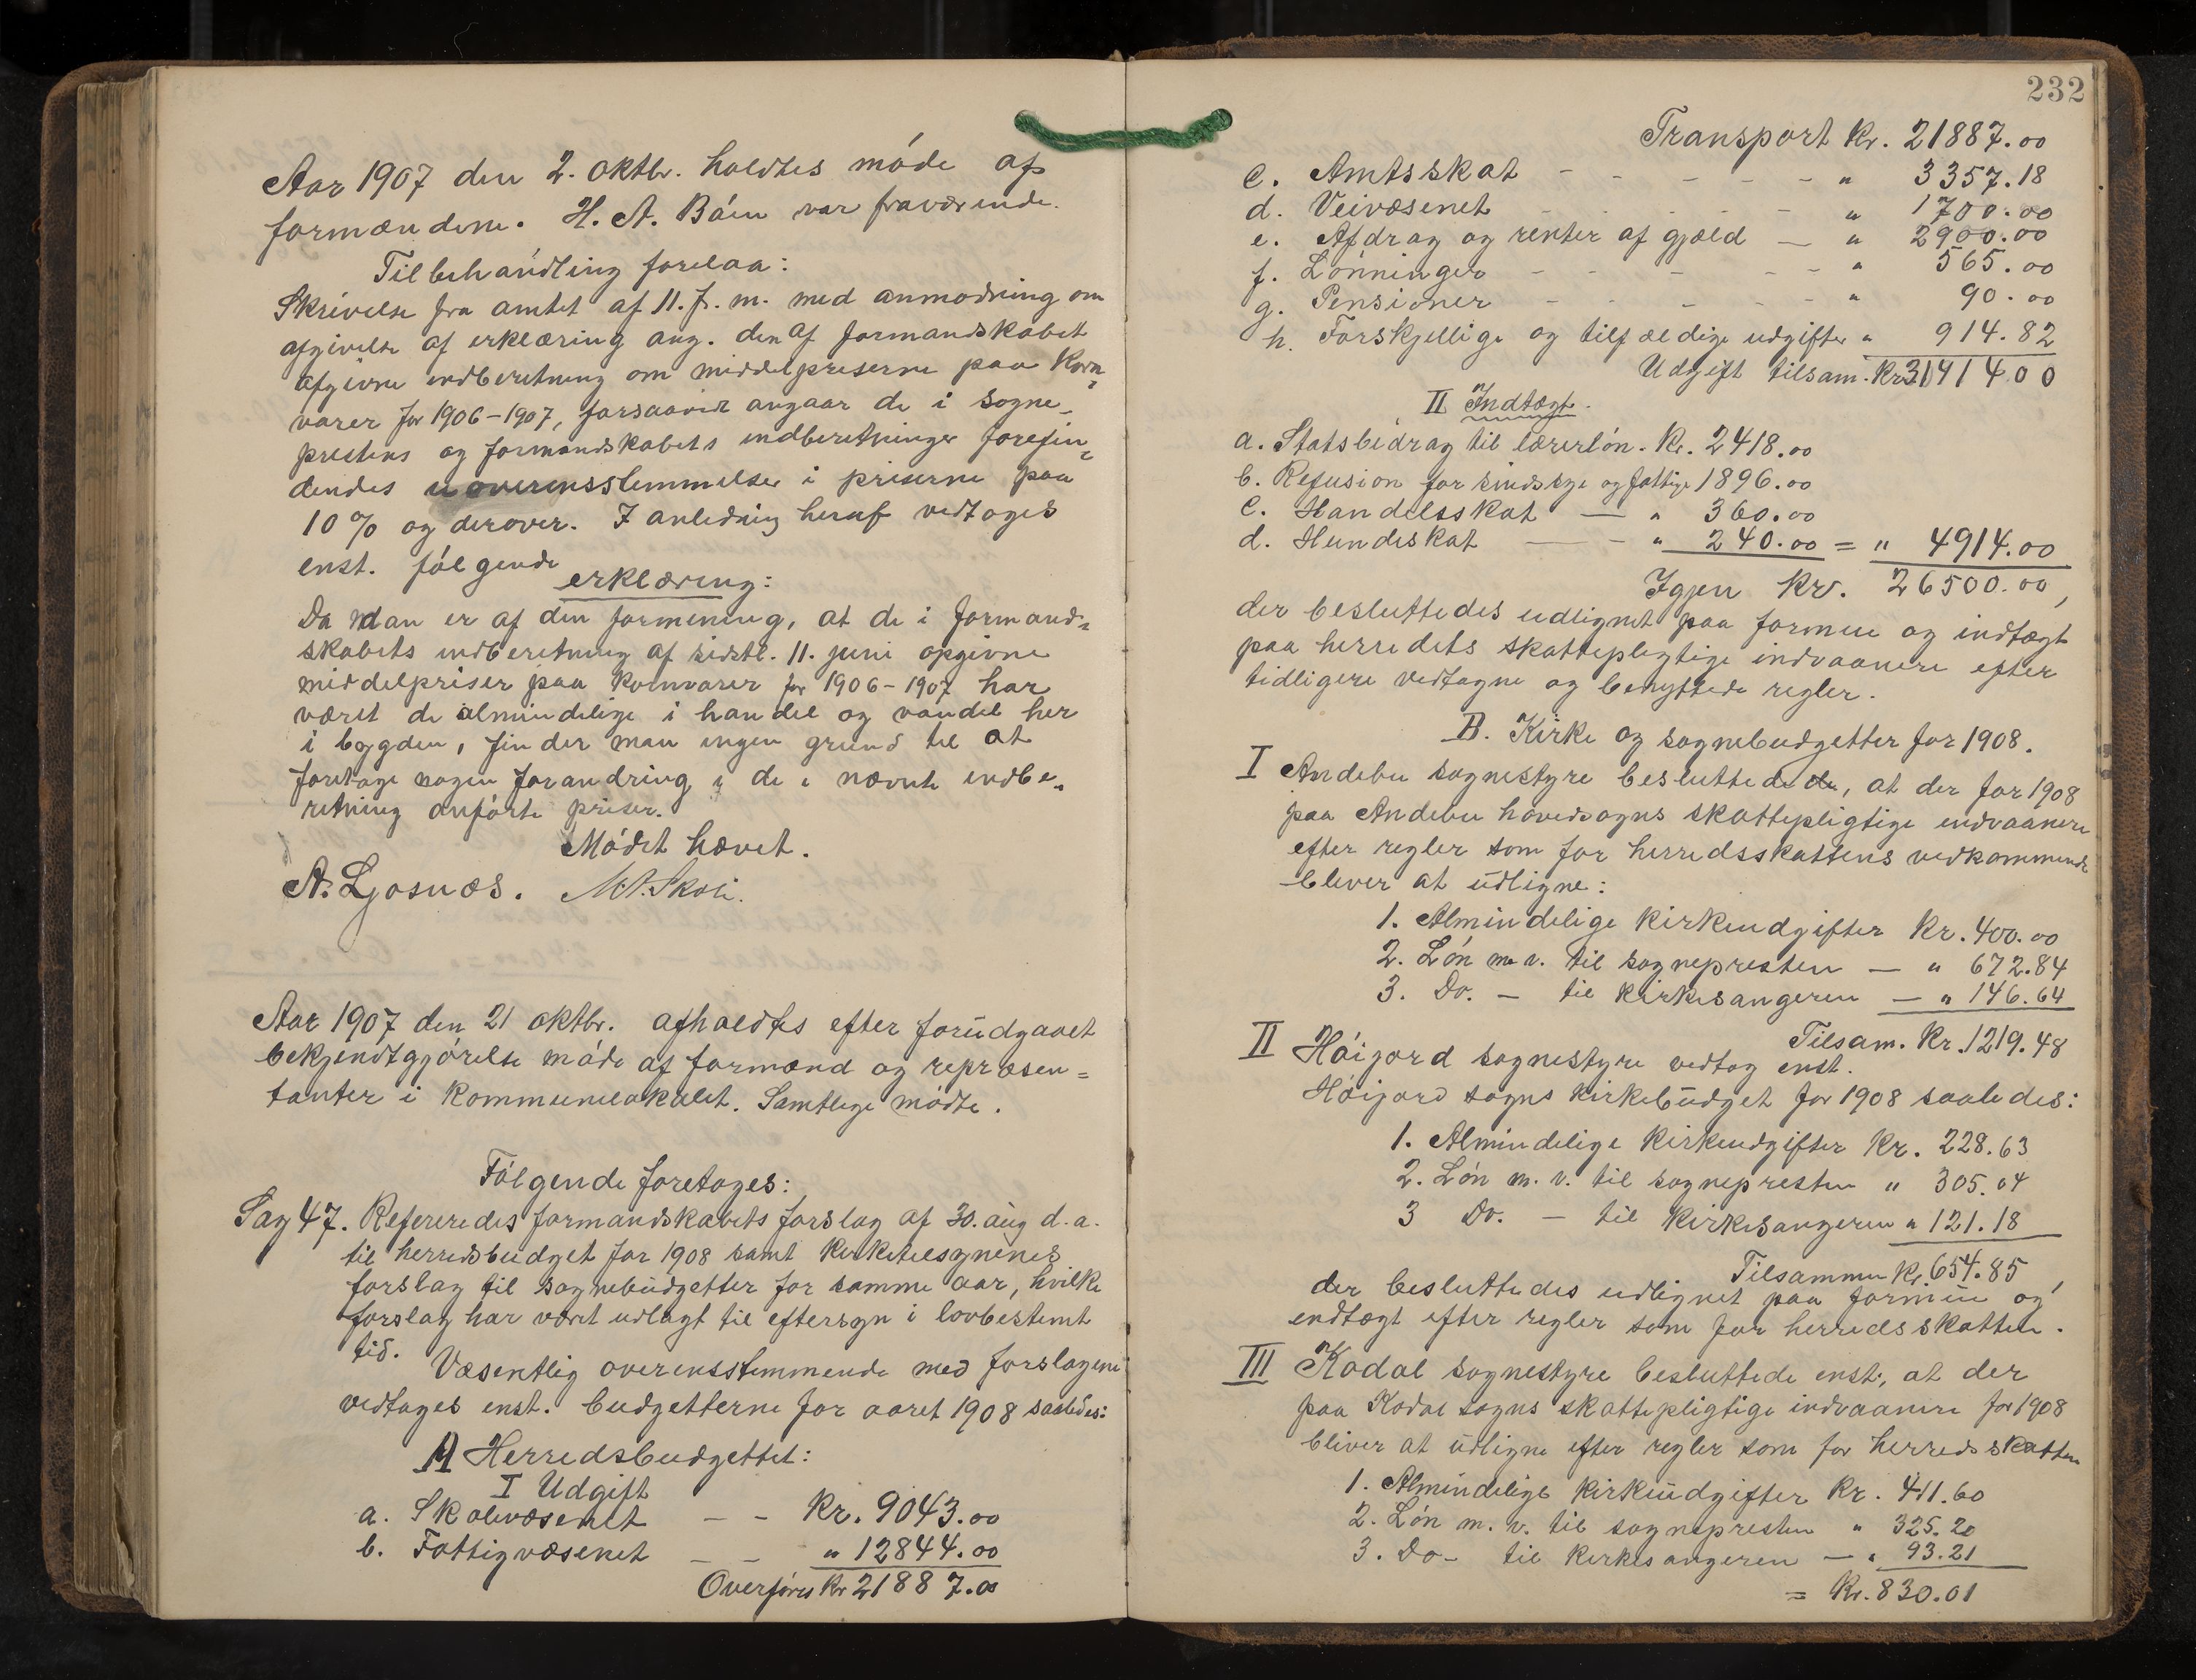 Aar 1907 den 2. oktbr. holdtes møde af
formændene. H. A. Bøen var fraværende.
Til behandling forelaa:
Skrivelse fra amtet af 11. f. m. med anmodning om
afgivelse af erklæring ang. den af formandskabet
afgivne indberetning om middelpriserne paa korn-
varer for 1906-1907, forsaavidt angaar de i sogne-
prestens og formandskabets indberetninger forefin-
dendes uoverensstemmelser i priserne paa
10 % og derover. I anledning heraf vedtoges
enst. følgende
erklæring:
Da man er af den formening, at de i formand-
skabets indberetning af sidstl. 11. juni opgivne
middelpriser paa kornvarer for 1906-1907 har
været de almindelige i handel og vandel her
i bygden, finder man ingen grund til at
foretage nogen forandring i de i nævnte indbe-
retning anførte priser.
Mødet hævet.
A. Ljosnæs. M. A. Skoli.
Aar 1907 den 21 oktbr. afholdtes efter forudgaaet
bekjendtgjørelse møde af formænd og repræsen=
tanter i kommunelokalet. Samtlige mødte.
Følgende foretoges:
Sag 47. Refereredes formandskabets forslag af 30. aug d. a.
til herredsbudget for 1908 samt kirketilsynenes
forslag til sognebudgetter for samme aar, hvilke
forslag har været udlagt til eftersyn i lovbestemt
tid.
Væsentlig overensstemmende med forslagene
vedtoges enst. budgetterne for aaret 1908 saaledes:
A Herredsbudgettet:
I Udgift
a. Skolevæsenet - - Kr. 9043.00
b. Fattigvæsenet - - " 12844.00
Overføres Kr 21887.00
232
Transport Kr. 21887.00
c. Amtsskat - - - - - " 3357.18
d. Veivæsenet - - - - - " 1700.00
e. Afdrag og renter af gjæld - " 2900.00
f. Lønninger - - - - - " 565.00
g. Pensioner - - - - - " 90.00
h. Forskjellige og tilfældige udgifter " 914.82
Udgift tilsam. Kr 31414.00
II Indtægt.
a. Statsbidrag til lærerløn. Kr. 2418.00
b. Refusion for sindssyge og fattige 1896.00
c. Handelsskat - " 360.00
d. Hundeskat - - " 240.00 = " 4914.00
Igjen Kr. 26500.00,
der besluttedes udlignet paa formue og indtægt
paa herredets skattepligtige indvaanere efter
tidligere vedtagne og benyttede regler.
B. Kirke og sognebudgetter for 1908.
I Andebu sognestyre besluttede de, at der for 1908
paa Andebu hovedsogns skattepligtige indvaanere
efter regler som for herredsskattens vedkommende
bliver at udligne:
1. Almindelige kirkeudgifter Kr. 400.00
2. Løn m. v. til sognepresten - " 672.84
3. Do. - til kirkesangeren - " 146.64
Tilsam. Kr. 1219.48
II Høijord sognestyre vedtog enst.
Høijord sogns kirkebudget for 1908 saaledes:
1. Almindelige kirkeudgifter Kr. 228.63
2. Løn m. v. til sognepresten " 305.04
3 Do. - til kirkesangeren " 121.18
Tilsammen Kr. 654.85,
der besluttedes udlignet paa formue og
indtægt efter regler som for herredsskatten.
III Kodal sognestyre besluttede enst., at der
paa Kodal sogns skattepligtige indvaanere for 1908
bliver at udligne efter regler som for herredsskatten
1. Almindelige kirkeudgifter Kr. 411.60
2. Løn m. v. til sognepresten " 325.20
3. Do - til kirkesangeren - " 93.21
= Kr. 830.01